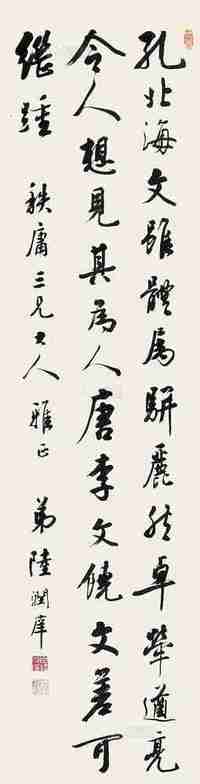 孔北海文雖體屬駢麗然卓犖遒亮
令人想見其為人唐李文饒文差可
繼踵
軼庸三兄大人 雅正 弟陸潤庠